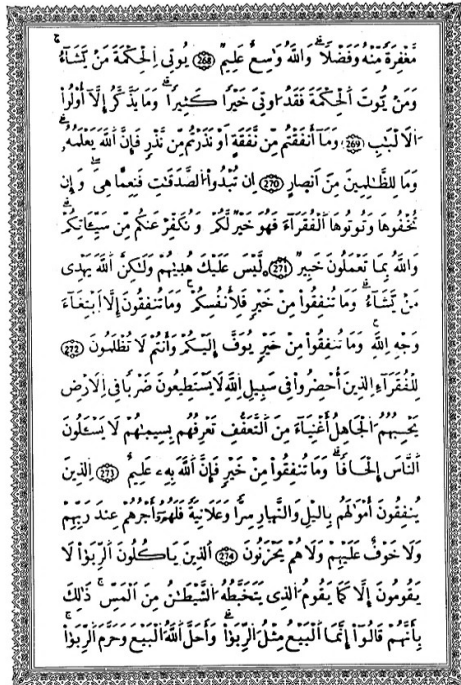 مَّغْفِرَةً مِّنْهُ وَفَضْلًا وَاللَّهُ وَاسِعٌ عَلِيمٌ 268 يُوتِي اِلْحِكْمَةَ مَنْ يَّشَآءُ
وَمَنْ يُّوتَ اَلْحِكْمَةَ فَقَدُ اوتِيَ خَيْرًا كَثِيرًا وَمَا يَذَّكَّرُ إِلَّآ أُوْلُوا
اَلَالْبَٰبِ 269 وَمَآ أَنفَقْتُم مِّن نَّفَقَةٍ اَوْ نَذَرْتُم مِّن نَّذْرٍ فَإِنَّ اَللَّهَ يَعْلَمُهُۥ
وَمَا لِلظَّٰلِمِينَ مِنَ اَنصِارٍ 270 إِن تُبْدُوا اُلصَّدَقَٰتِ فَنِعِمَّا هِيَ وَإِن
تُخْفُوهَا وَتُوتُوهَا اَلْفُقَرَآءَ فَهُوَ خَيْرٌ لَّكُمْ وَنُكَفِّرْ عَنكُم مِّن سَيِّـَٔاتِكُمْ
وَاللَّهُ بِمَا تَعْمَلُونَ خَبِيرٌ 271 لَّيْسَ عَلَيْكَ هُدَىٰهُمْ وَلَٰكِنَّ اَللَّهَ يَهْدِي
مَنْ يَّشَآءُ وَمَا تُنفِقُوا مِنْ خَيْرٍ فَلِأَنفُسِكُمْ وَمَا تُنفِقُونَ إِلَّا اَبْتِغَآءَ
وَجْهِ اِللَّهِ وَمَا تُنفِقُوا مِنْ خَيْرٍ يُوَفَّ إِلَيْكُمْ وَأَنتُمْ لَا تُظْلَمُونَ 272
لِلْفُقَرَآءِ اِلذِينَ أُحْصِرُوا فِي سَبِيلِ اِللَّهِ لَا يَسْتَطِيعُونَ ضَرْبًا فِي اِلَارْضِ
يَحْسِبُهُمُ اُلْجَاهِلُ أَغْنِيَآءَ مِنَ اَلتَّعَفُّفِ تَعْرِفُهُم بِسِيمَٰهُمْ لَا يَسْـَٔلُونَ
اَلنَّاسَ إِلْحَافًا وَمَا تُنفِقُوا مِنْ خَيْرٍ فَإِنَّ اَللَّهَ بِهِۦ عَلِيمٌ 273 اِلذِينَ
يُنفِقُونَ أَمْوَٰلَهُم بِاليْلِ وَالنَّهِارِ سِرًّا وَعَلَانِيَةً فَلَهُمُۥٓ أَجْرُهُمْ عِندَ رَبِّهِمْ
وَلَا خَوْفٌ عَلَيْهِمْ وَلَا هُمْ يَحْزَنُونَ 274 اَلذِينَ يَاكُلُونَ اَلرِّبَوٰا لَا
يَقُومُونَ إِلَّا كَمَا يَقُومُ اُلذِي يَتَخَبَّطُهُ اُلشَّيْطَٰنُ مِنَ اَلْمَسِّ ذَٰلِكَ
بِأَنَّهُمْ قَالُوٓا إِنَّمَا اَلْبَيْعُ مِثْلُ اُلرِّبَوٰا وَأَحَلَّ اَللَّهُ اُلْبَيْعَ وَحَرَّمَ اَلرِّبَوٰا